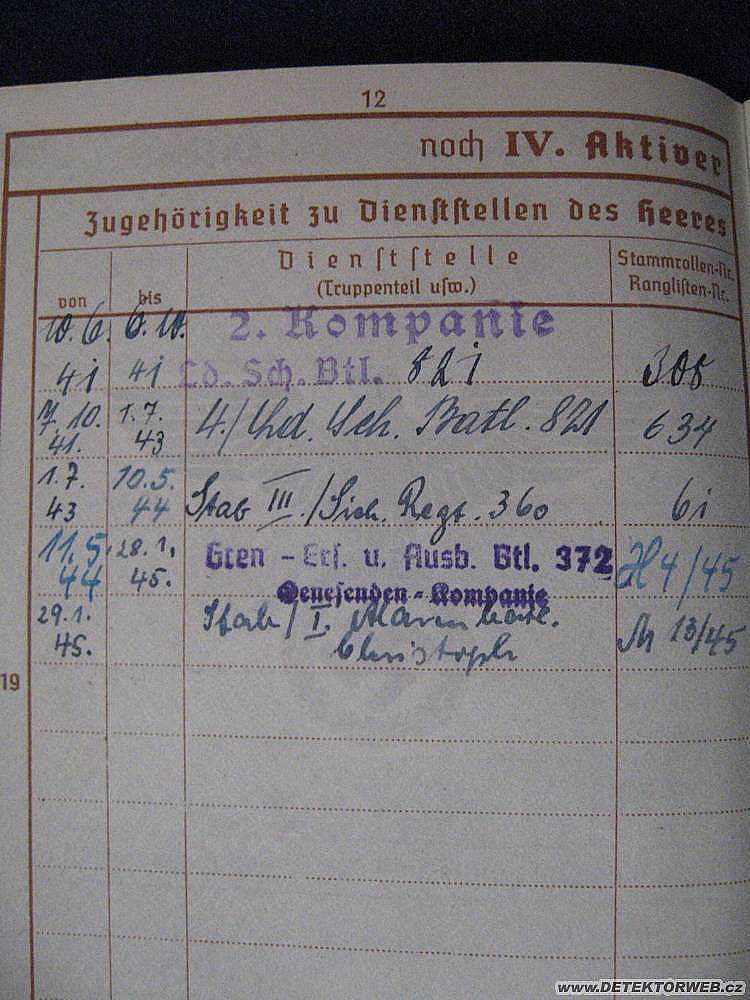 12
noch IV. Aktiver
Zugehörigkeit zu Dienststellen des Heeres
von bis Dienststelle (Truppenteil usw.) Stammrollen-Nr. Ranglisten-Nr.
10.6. 6.10. 2. Kompanie
41 41 Ld. Sch. Btl. 821 308
7.10. 1.7. 4./Lhd. Sch. Batl. 821 634
41. 43
1.7. 10.5. Stab III./Sich. Regt. 360 61
43 44
11.5. 28.1. Gren - Ers. u. Ausb. Btl. 372 4/45
44 45. Genesenden - Kompanie
29.1. Stab/I. 13/45
45. Christoph
19
www.DETEKTORWEB.cz